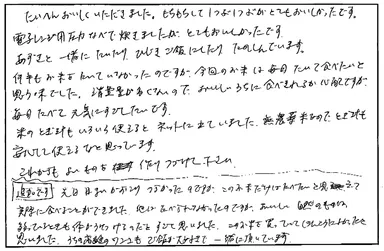 たいへんおいしくいただきました。もちもちして1つぶ1つぶがとてもおいしかったです。
電子レンジ用圧力なべで炊きましたが、とてもおいしかったです。
あずきと一緒にたいたり ひじきご飯にしたり たのしんでいます。
何年もお米をたいていなかったのですが、今回のお米は毎日たいて食べたいと
思う味でした。消費量が少ないので、おいしいうちに食べきれるか心配ですが、
毎日たべて元気にすごしたいです。
米のとぎ汁もいろいろ使えると ネットに出ていました。無農薬米なので とぎ汁も
安心して使えるなと思っています。
これからも よいものを 作りつづけて下さい
追伸です 元日
このお米だけは食べたいと
実際に食べることができました。他は 食べられなかったのですが、おいしい 自然のものは、
弱っているときも 体が
思いました。このお米を 買っていて
うちの のワンコも ご飯が大好きで 一緒に頂いています